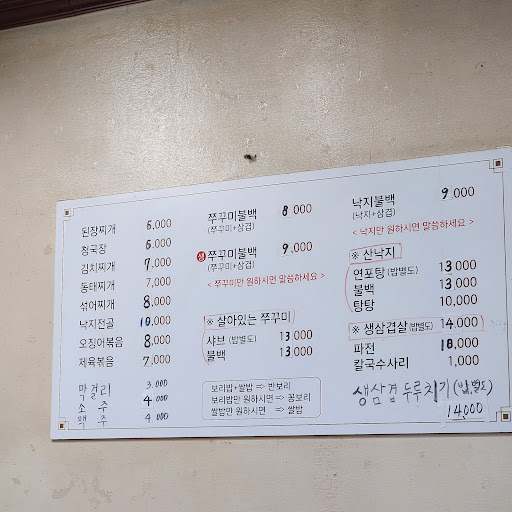 된장찌개 6,000
청국장 6,000
김치찌개 7,000
동태찌개 7,000
섞어찌개 8,000
낙지전골 10,000
오징어볶음 8,000
제육볶음 7,000
막걸리 3.000
소주 4.000
맥주 4.000
쭈꾸미불백 8,000
(쭈꾸미+삼겹)
생 쭈꾸미불백 9,000
(쭈꾸미+삼겹)
< 쭈꾸미만 원하시면 말씀하세요 >
※ 살아있는 쭈꾸미
샤브 (밥별도) 13,000
불백 13,000
보리밥+쌀밥 => 반보리
보리밥만 원하시면 => 꽁보리
쌀밥만 원하시면 => 쌀밥
낙지불백 9,000
(낙지+삼겹)
< 낙지만 원하시면 말씀하세요 >
※ 산낙지
연포탕 (밥별도) 13,000
불백 13,000
탕탕 10,000
※ 생삼겹살 (밥별도) 14,000
파전 10,000
칼국수사리 1,000
생삼겹 두루치기 (밥별도)
14,000